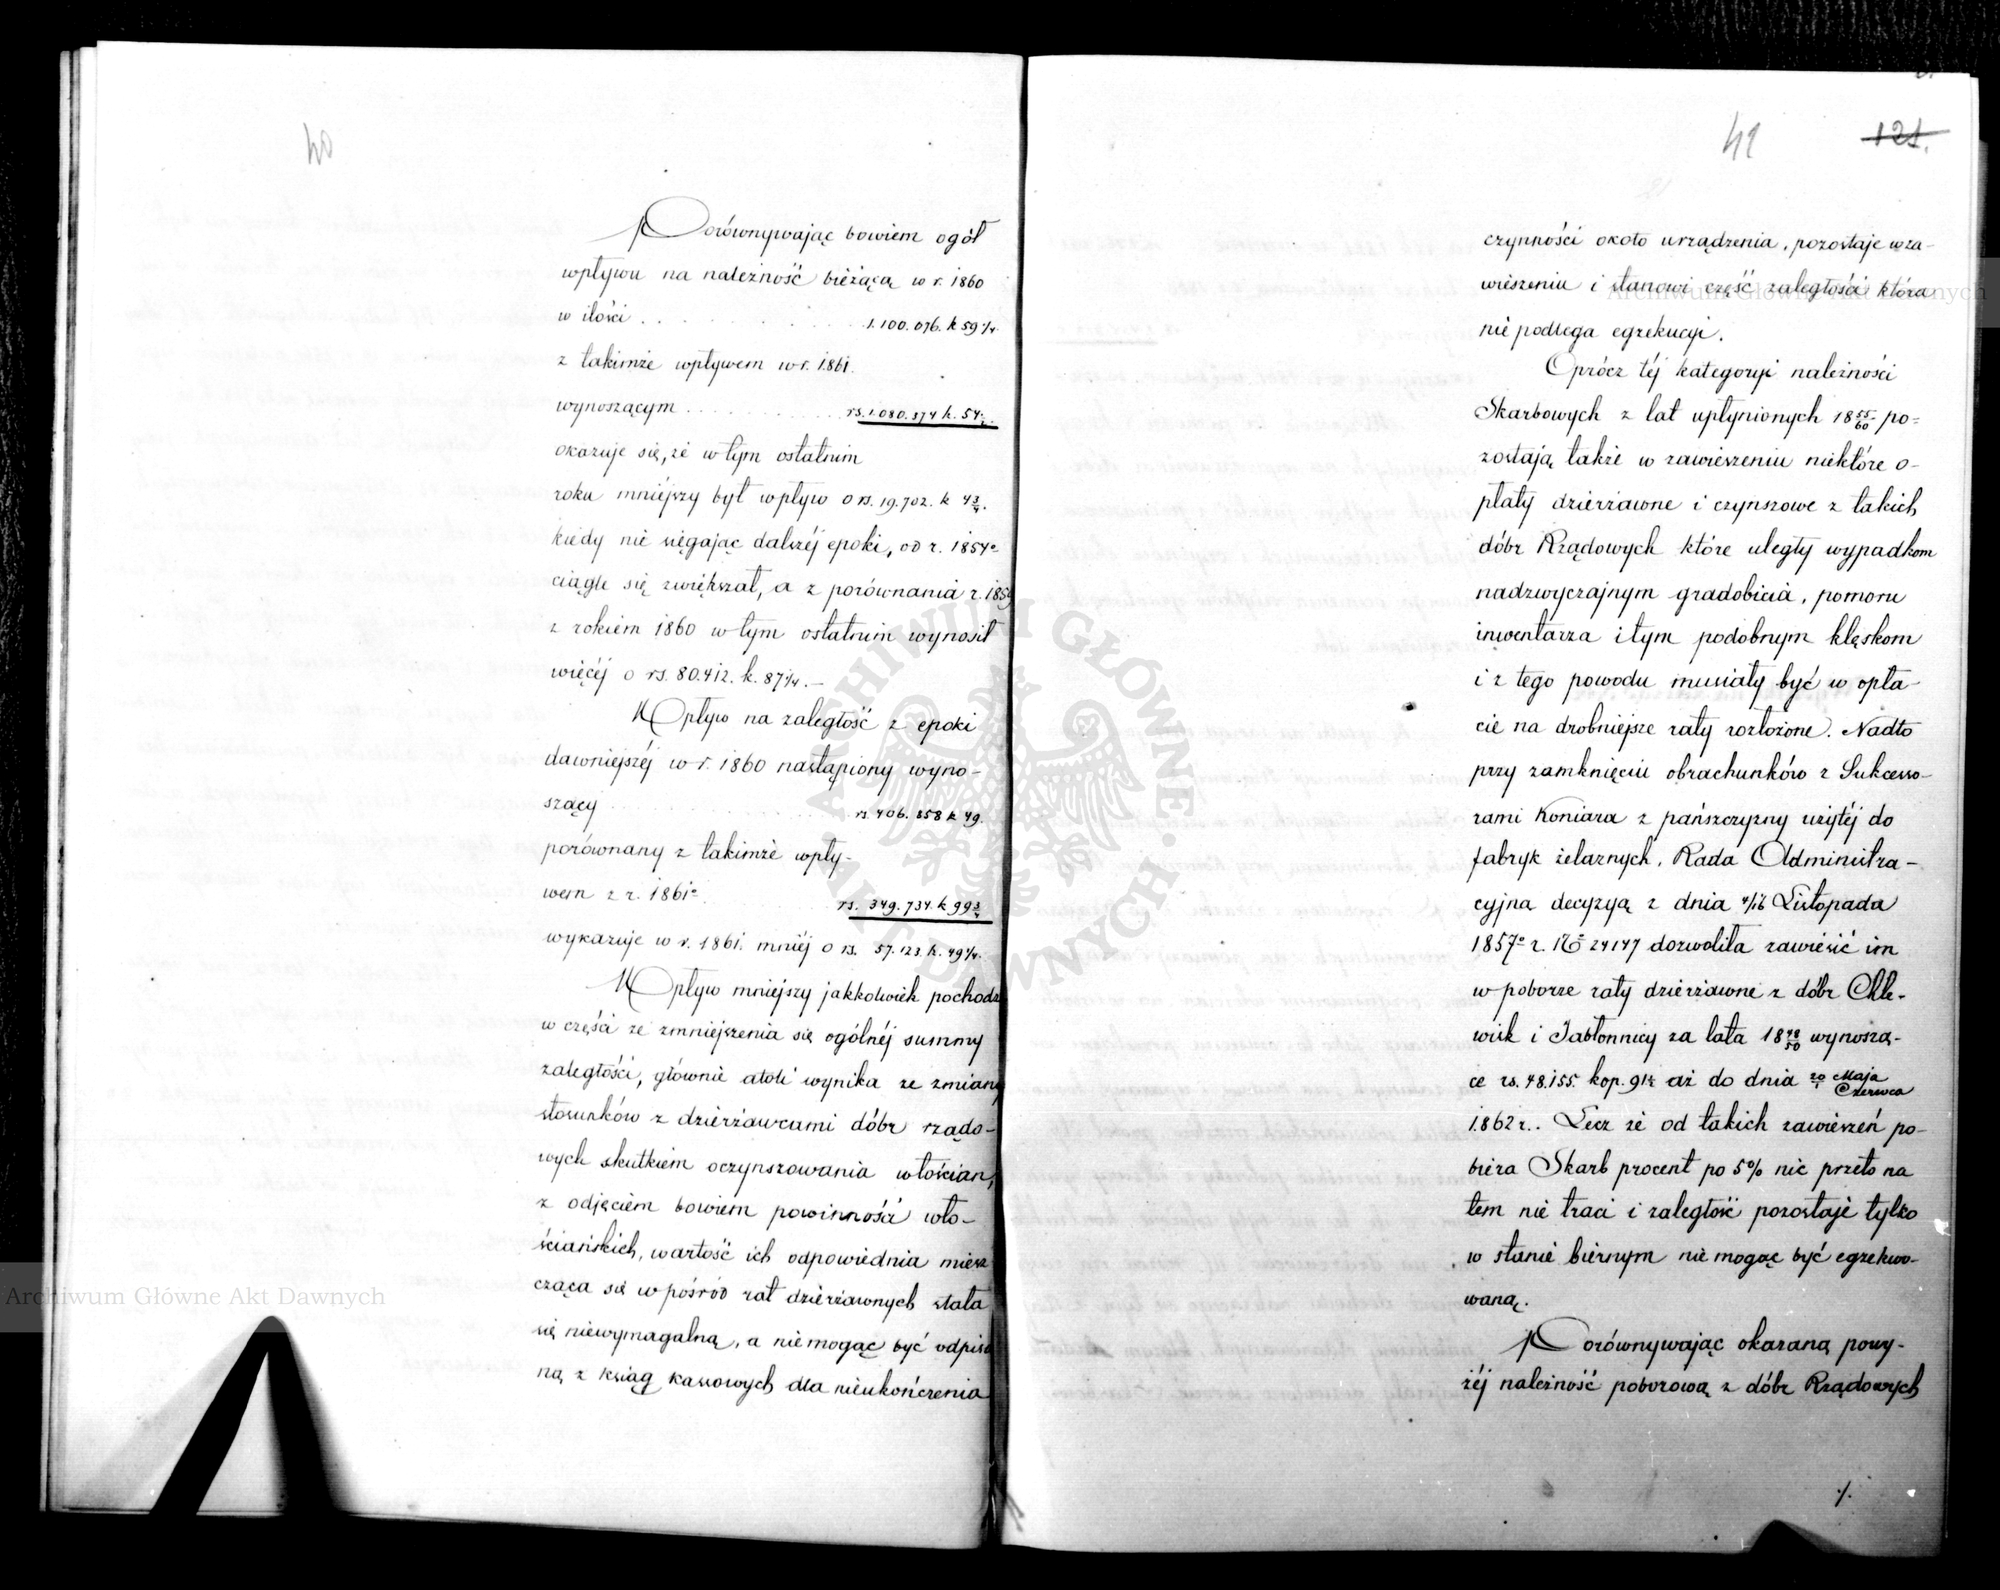 40
Porównywając bowiem ogół
wpływu na należność bieżącą w r. 1860
w ilości . . . . . . 1.100.076. k 59 1/4.
z takimże wpływem w r. 1861.
wynoszącym . . . . . . rs. 1.080.374 k. 54 1/2.
okazuje się, że w tym ostatnim
roku mniéjszy był wpływ o rs. 19.702. k 4 3/4.
kiedy nie sięgając dalszéj epoki, od r. 1854º
ciągle się zwiększał, a z porównania r. 1859
z rokiem 1860 w tym ostatnim wynosił
więcéj o rs. 80.412. k. 87 1/4. —
Wpływ na zaległość z epoki
dawniejszéj w r. 1860 nastąpiony wyno-
szący . . . . . . rs. 406.858 k 49.
porównany z takimże wpły-
wem z r. 1861º . . . . . . rs. 349.734. k 99 3/4
wykazuje w r. 1861. mniéj o rs. 57.123. k. 49 1/4.
Wpływ mniejszy jakkolwiek pochodzi
w części ze zmniejszenia się ogólnéj summy
zaległości, głównie atoli wynika ze zmiany
stosunków z dzierżawcami dóbr rządo-
wych skutkiem oczynszowania włościan,
z odjęciem bowiem powinności wło-
ściańskich, wartość ich odpowiednia miesz
cząca się w pośród rat dzierżawnych stała
się niewymagalną, a nie mogąc być odpisa
ną z ksiąg kassowych dla nieukończenia
41
121.
czynności około urządzenia, pozostaje w za-
wieszeniu i stanowi część zaległości która
nie podlega egzekucyi.
Oprócz téj kategoryi należności
Skarbowych z lat upłynionych 18 55/60 po-
zostają także w zawieszeniu niektóre o-
płaty dzierżawne i czynszowe z takich
dóbr Rządowych które uległy wypadkom
nadzwyczajnym gradobicia, pomoru
inwentarza i tym podobnym klęskom
i z tego powodu musiały być w opła-
cie na drobniejsze raty rozłożone. Nadto
przy zamknięciu obrachunków z Sukcesso-
rami Koniara z pańszczyzny użytéj do
fabryk żelaznych, Rada Administra-
cyjna decyzyą z dnia 4/16 Listopada
1857º r. Nº 24147 dozwoliła zawiesić im
w poborze raty dzierżawne z dóbr Chle-
wisk i Jabłonnicy za lata 18 48/50 wynoszą-
ce rs. 48.155. kop. 91 1/2 aż do dnia 20 Maja/1 Czerwca
1862 r.. Lecz że od takich zawieszeń po-
biera Skarb procent po 5% nic przeto na
tem nie traci i zaległość pozostaje tylko
w stanie biernym nie mogąc być egzekwo-
waną.
Porównywając okazaną powy-
żéj należność poborową z dóbr Rządowych
./.
Archiwum Główne Akt Dawnych
Archiwum Główne Akt Dawnych
ARCHIWUM GŁÓWNE AKT DAWNYCH